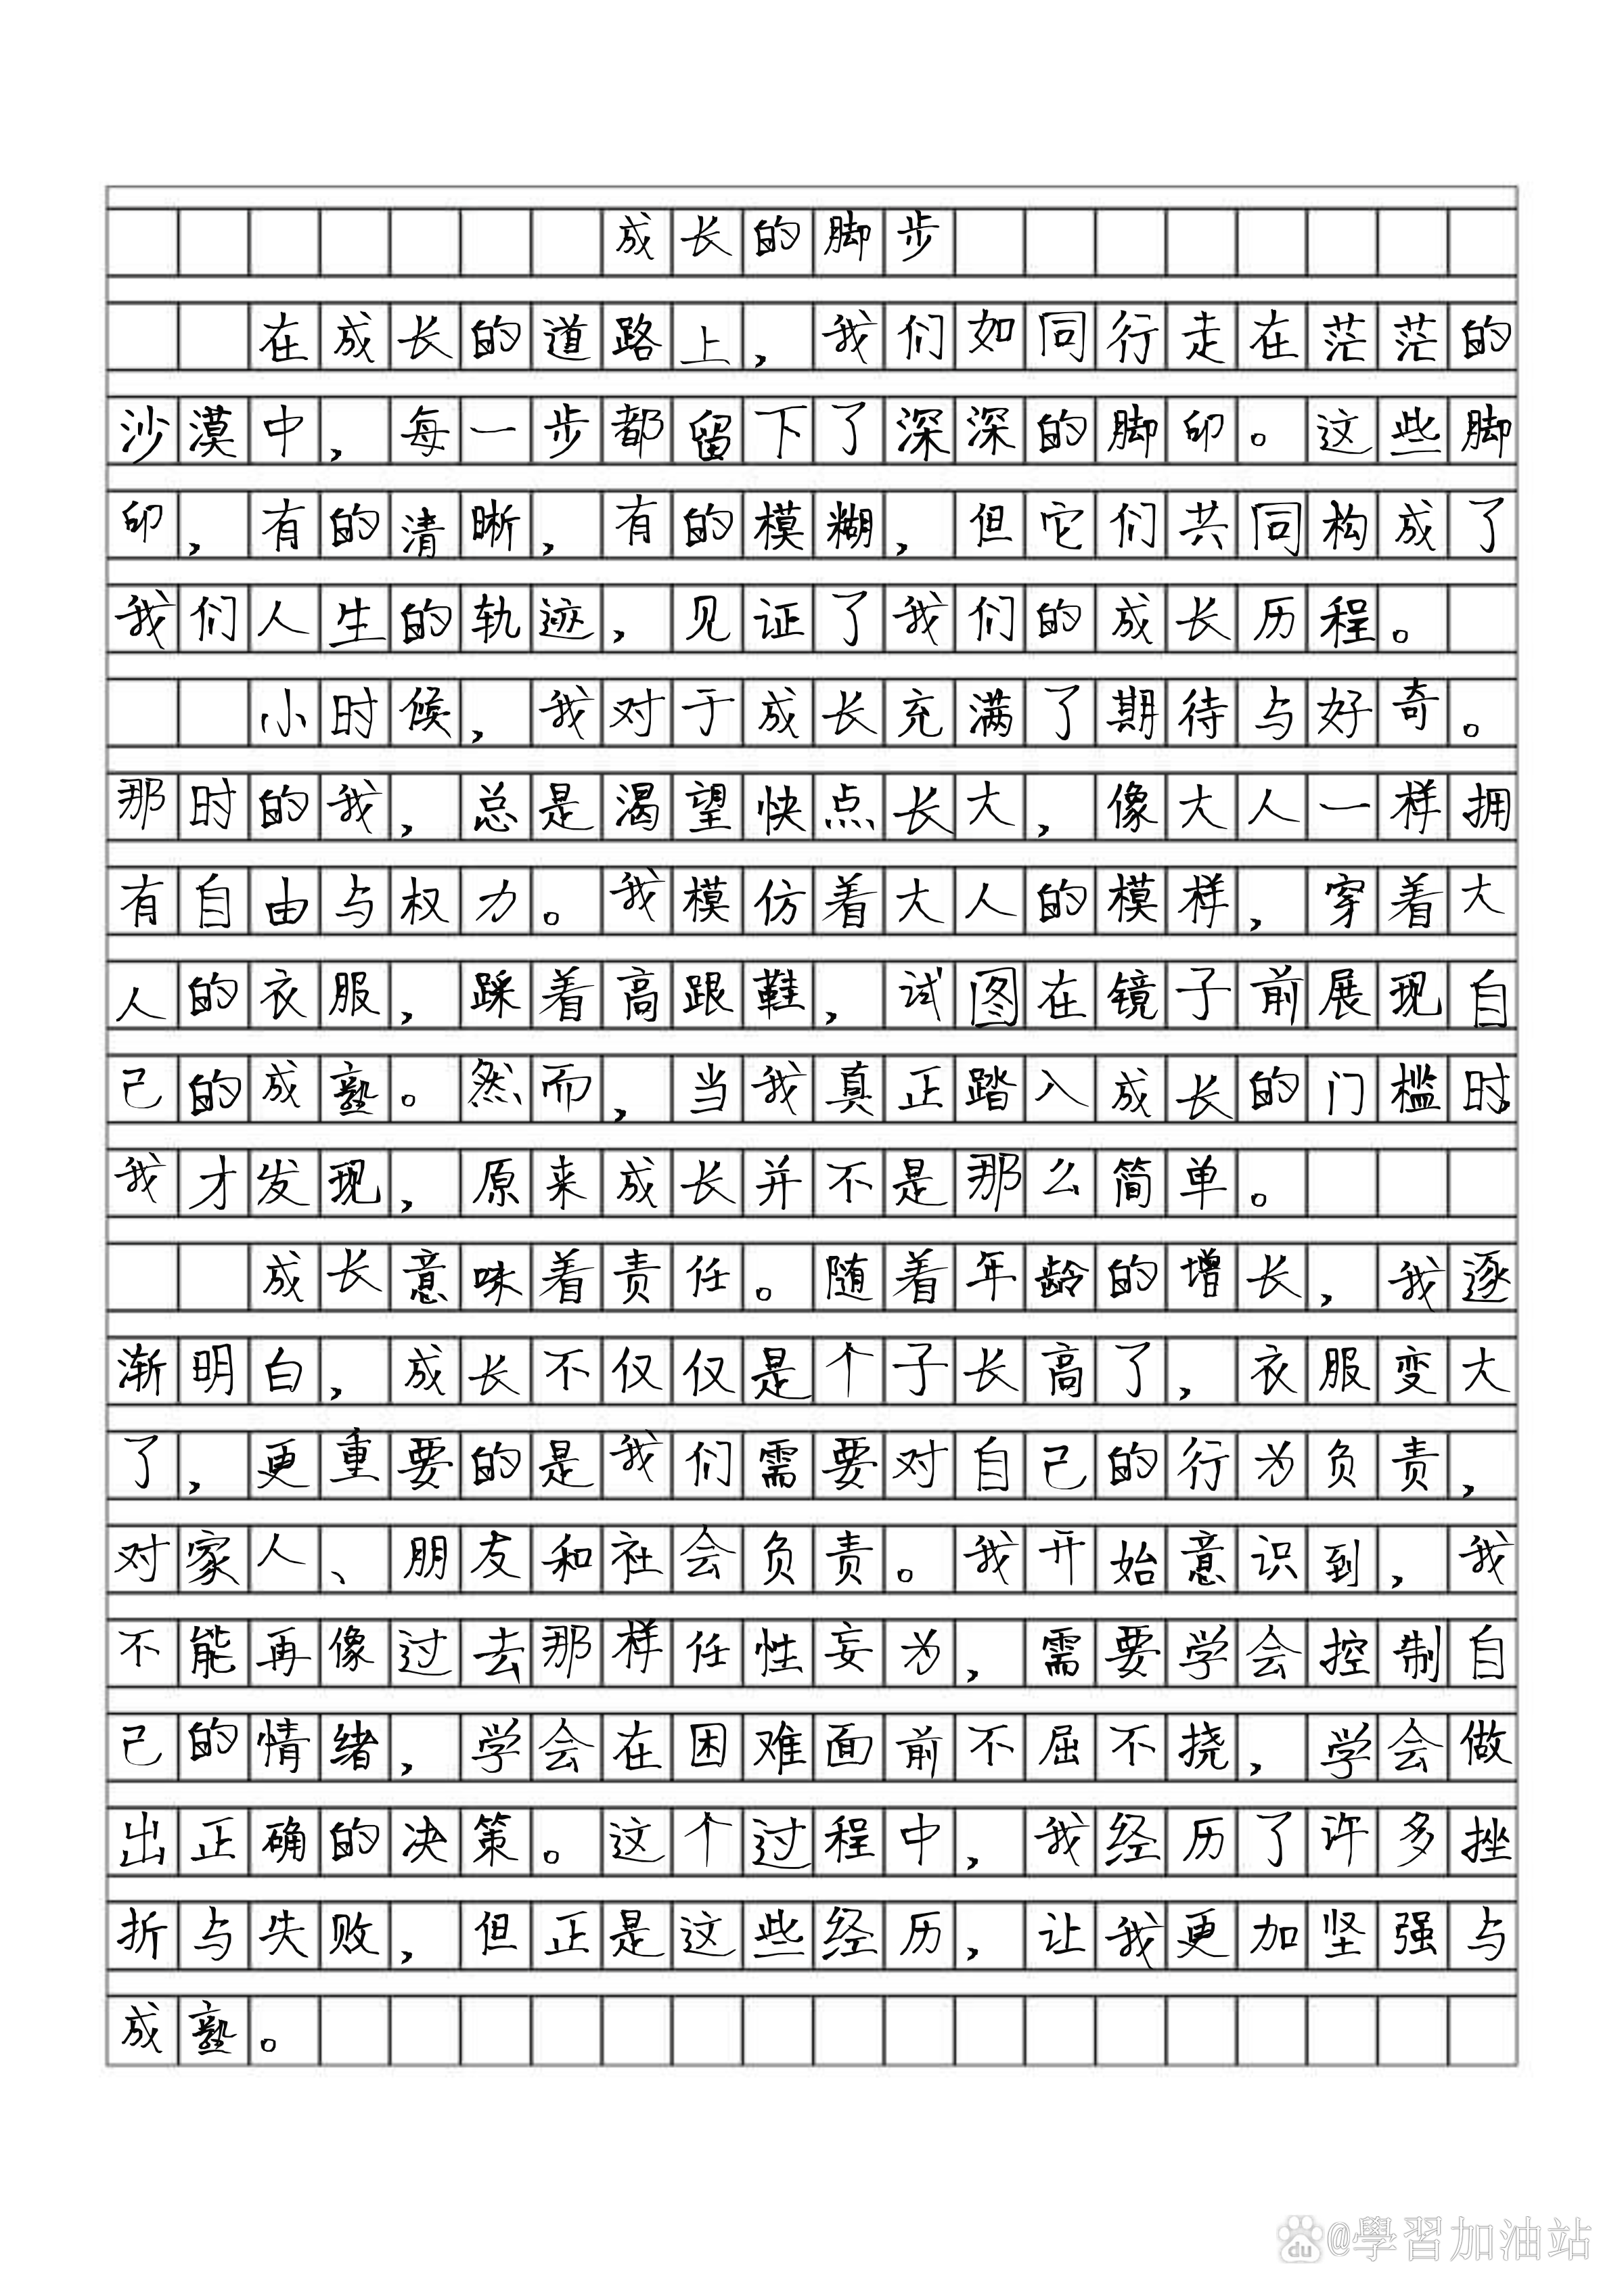 成长的脚步
在成长的道路上，我们如同行走在茫茫的
沙漠中，每一步都留下了深深的脚印。这些脚
印，有的清晰，有的模糊，但它们共同构成了
我们人生的轨迹，见证了我们的成长历程。
小时候，我对于成长充满了期待与好奇。
那时的我，总是渴望快点长大，像大人一样拥
有自由与权力。我模仿着大人的模样，穿着大
人的衣服，踩着高跟鞋，试图在镜子前展现自
己的成熟。然而，当我真正踏入成长的门槛时，
我才发现，原来成长并不是那么简单。
成长意味着责任。随着年龄的增长，我逐
渐明白，成长不仅仅是个子长高了，衣服变大
了，更重要的是我们需要对自己的行为负责，
对家人、朋友和社会负责。我开始意识到，我
不能再像过去那样任性妄为，需要学会控制自
己的情绪，学会在困难面前不屈不挠，学会做
出正确的决策。这个过程中，我经历了许多挫
折与失败，但正是这些经历，让我更加坚强与
成熟。
du @學習加油站